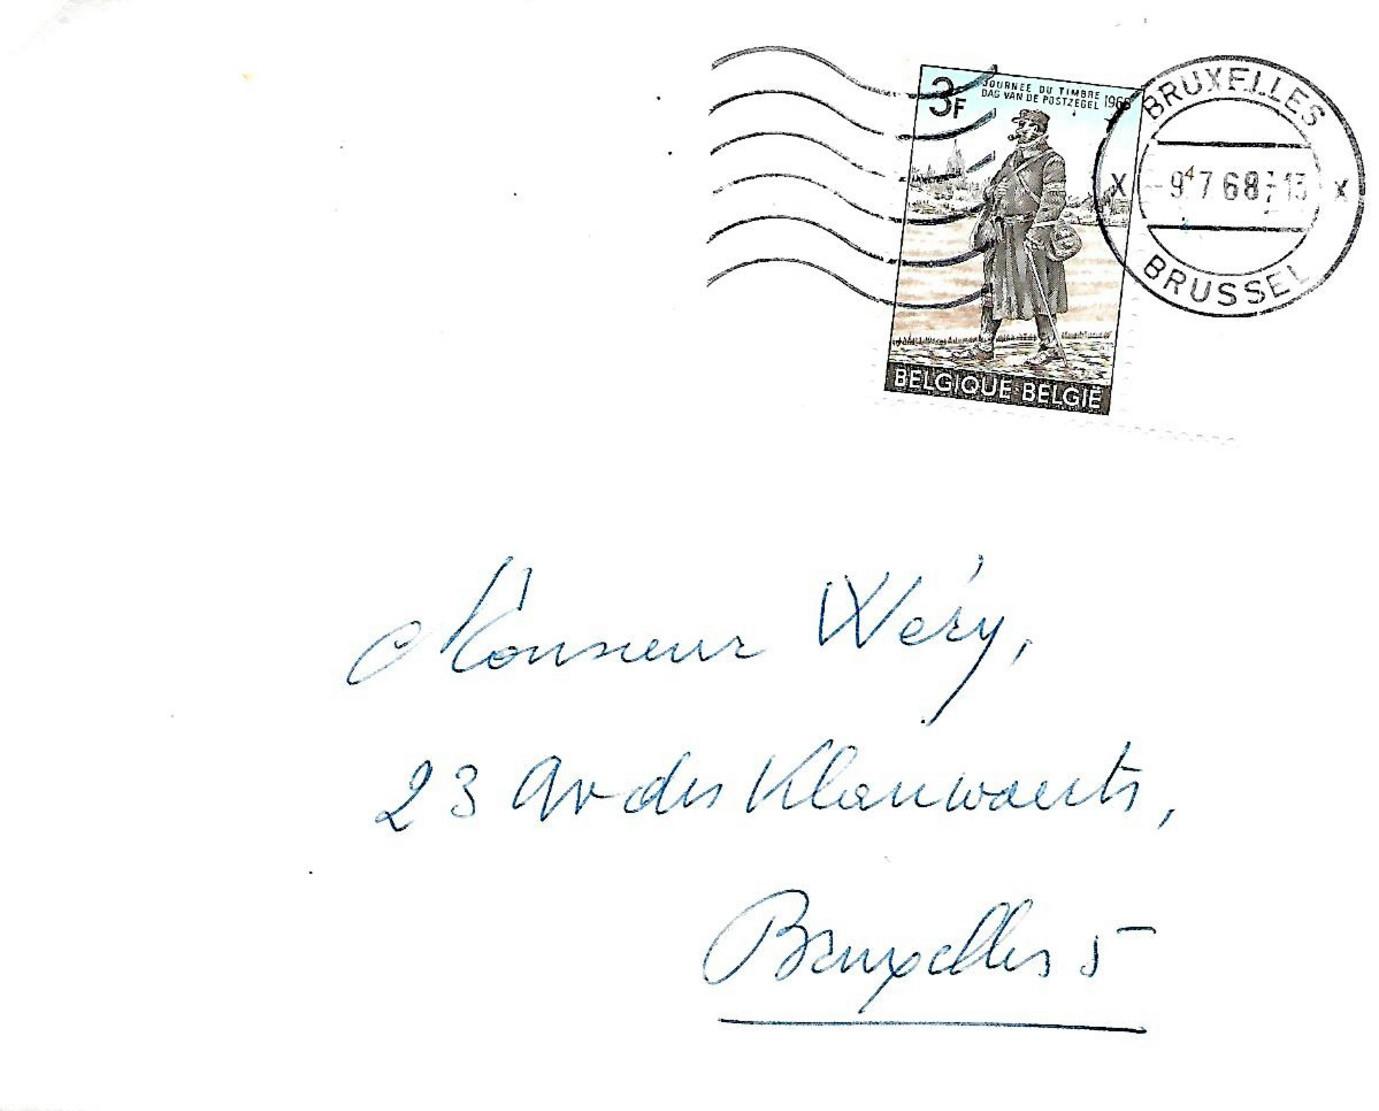 3F
JOURNEE DU TIMBRE
DAG VAN DE POSTZEGEL 1968
BELGIQUE-BELGIË
BRUXELLES
X -9 4 7 68 -13 X
BRUSSEL
Monsieur Wéry,
23 Av des Klauwaerts,
Bruxelles 5